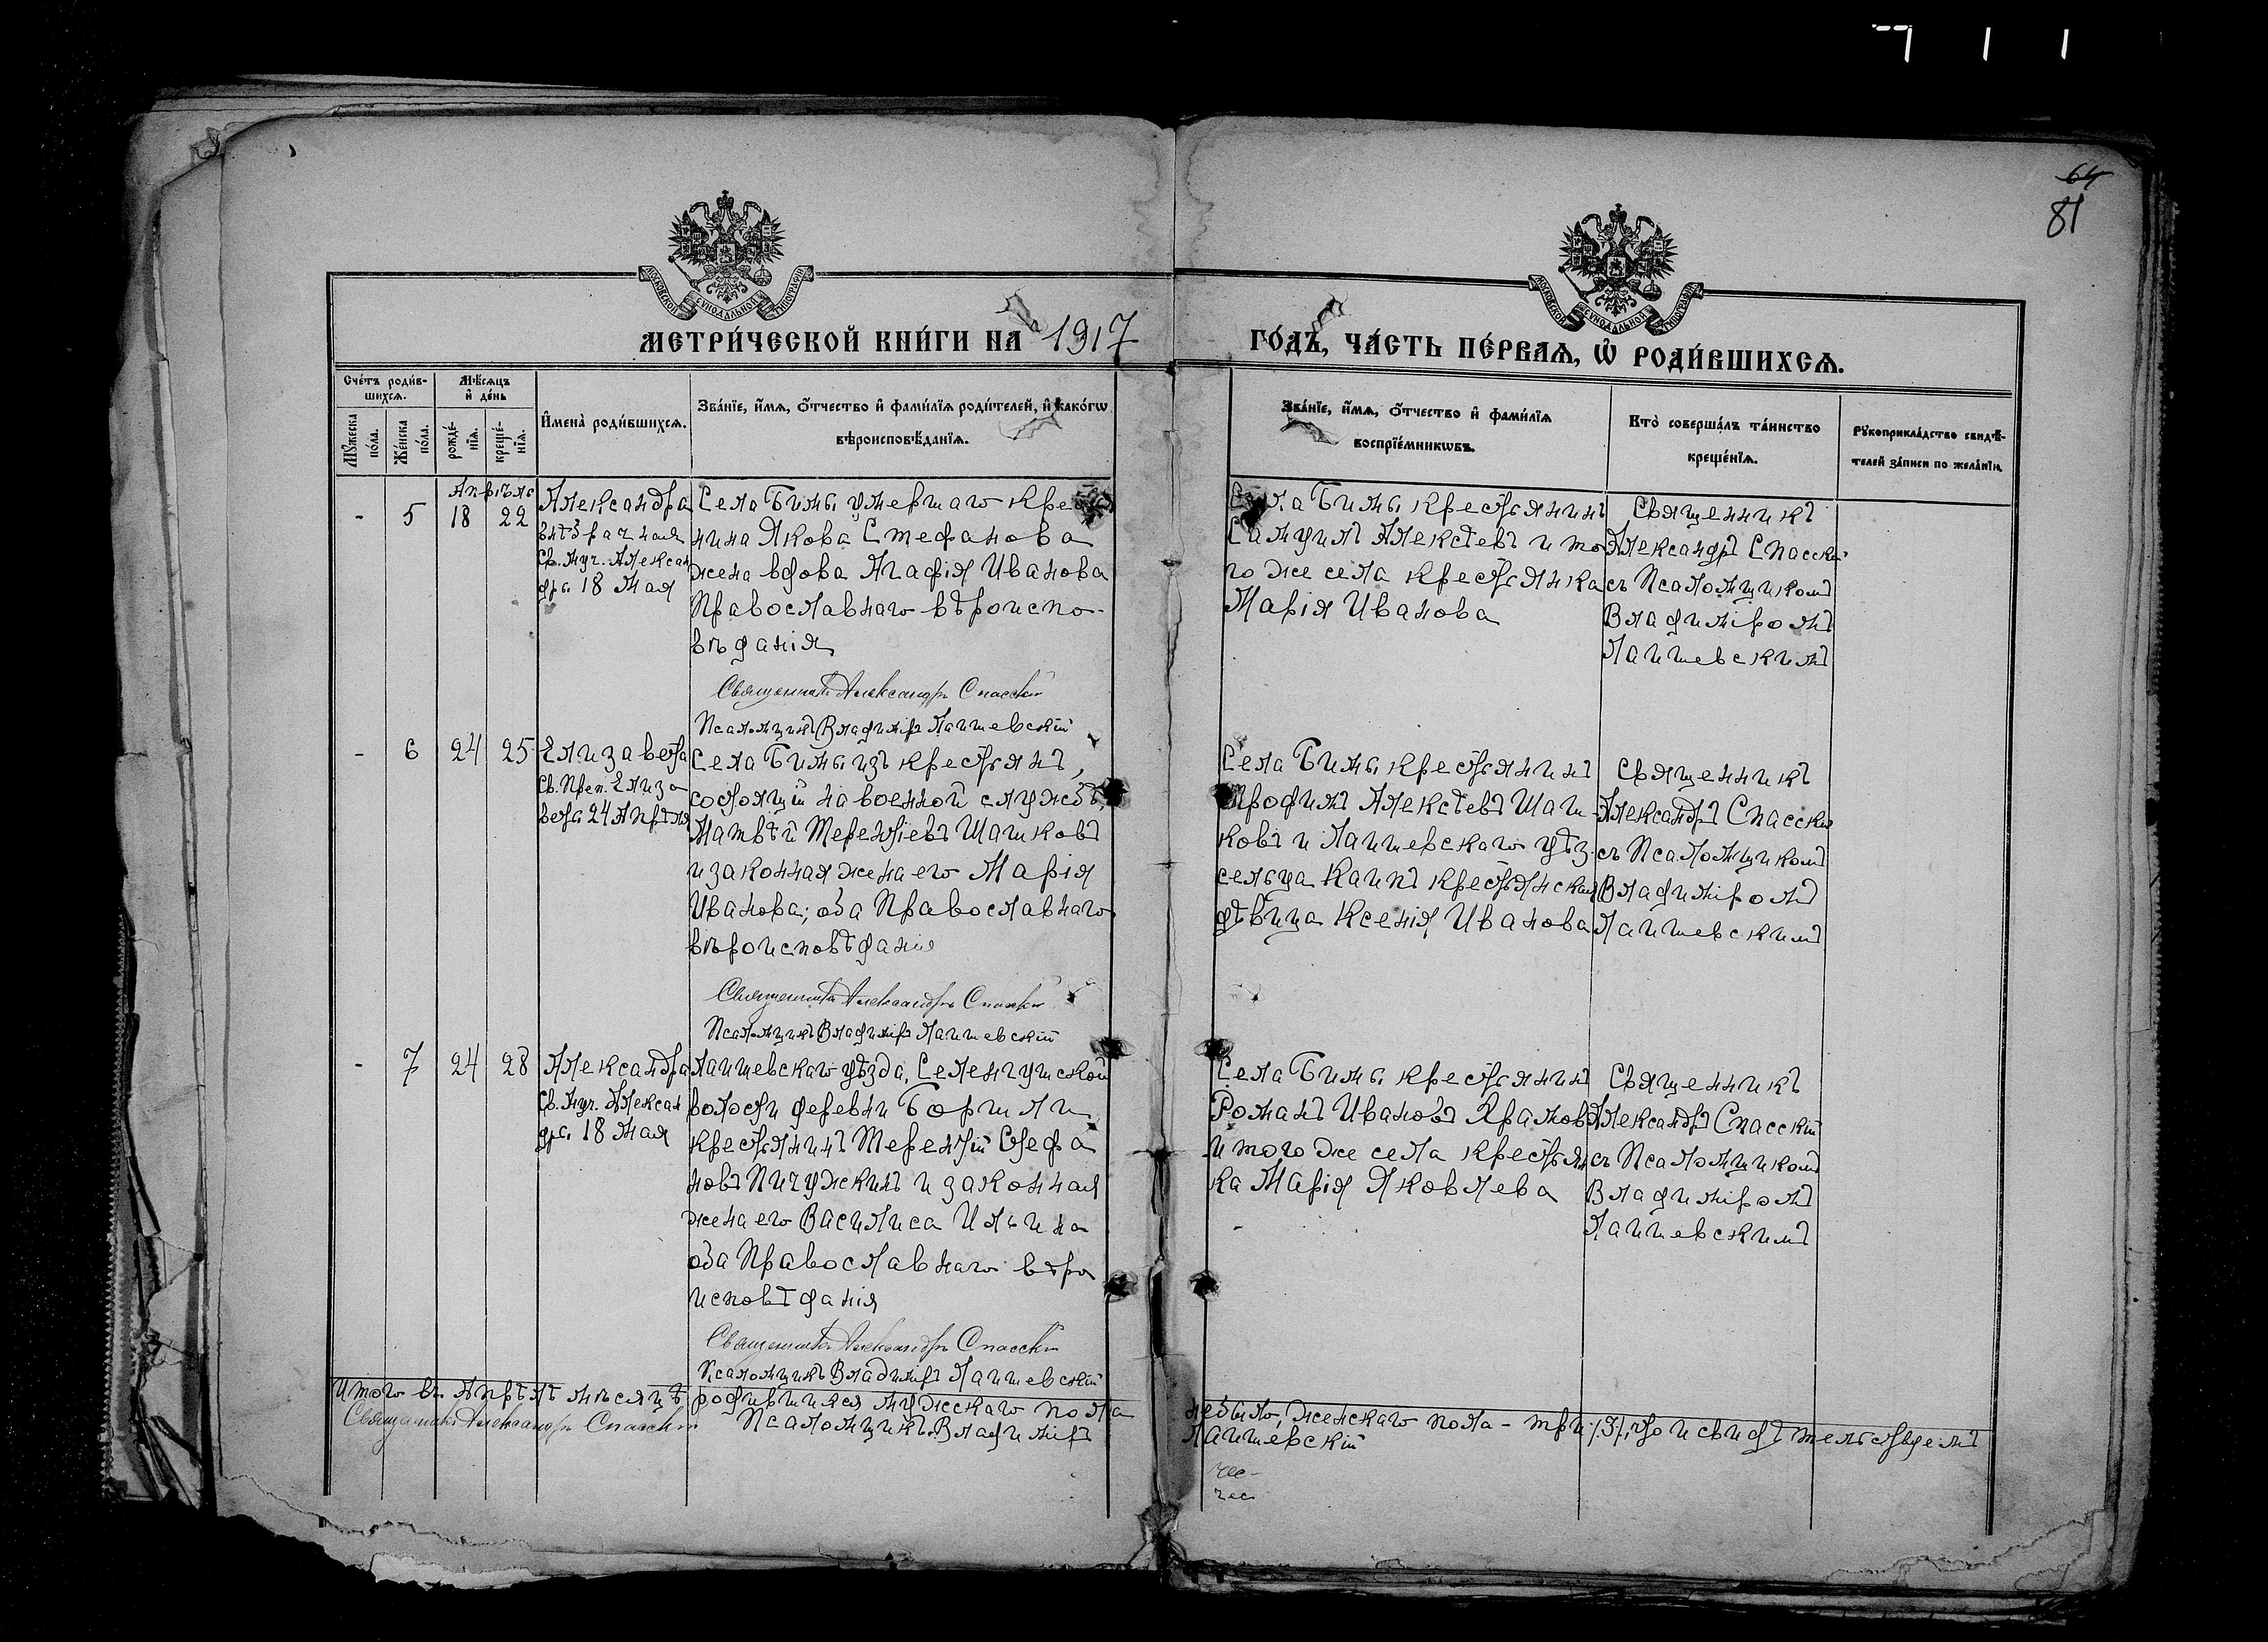 64
81
МОСКОВСКОЙ СѴНОДАЛЬНОЙ ТИПОГРАФІИ
МОСКОВСКОЙ СѴНОДАЛЬНОЙ ТИПОГРАФІИ
МЕТРИ́ЧЕСКОЙ КНИ́ГИ НА 1917
ГО́ДЪ, ЧА́СТЬ ПЕ́РВАѦ, Ѽ РОДИ́ВШИХСѦ.
Сче́тъ роди́в-
шихсѧ.
Мѣ́сѧцъ
и҆ де́нь
Мꙋ́жеска по́ла.
Же́нска по́ла.
рожде́-нїѧ.
креще́-нїѧ.
И҆мена̀ роди́вшихсѧ.
Зва́нїе, и҆́мѧ, ѻ҆́тчество и҆ фами́лїѧ роди́телей, и҆ како́гѡ
вѣроисповѣ́данїѧ.
Зва́нїе, и҆́мѧ, ѻ҆́тчество и҆ фами́лїѧ
воспрїе́мникѡвъ.
Кто̀ соверша́лъ та́инство
креще́нїѧ.
Рꙋкоприкла́дство свидѣ́-
телей за́писи по жела́нїю.
Апрѣль
- 5 18 22
Александра
внѣбрачная
Св. муч. Алексан
дры 18 мая
Села Бимы умершаго кре
нина Якова Стефанова
жена вдова Агафія Иванова
Православнаго вѣроиспо-
вѣданія
Священникъ Александръ Спасскій
Псаломщикъ Владимiръ Лаишевскій
Села Бимы крестьянинъ
Самуилъ Алексѣевъ и то
го же села крестьянка
Марія Иванова
Священникъ
Александръ Спасскій
съ Псаломщикомъ
Владиміромъ
Лаишевскимъ
- 6 24 25
Елизавета
Св. Преп. Елиза
веты 24 Апрѣля
Села Бимы изъ крестьянъ,
состоящій на военной службѣ,
Матвѣй Терентіевъ Шашковъ
и законная жена его Марія
Иванова; оба Православнаго
вѣроисповѣданія
Священникъ Александръ Спасскій
Псаломщикъ Владиміръ Лаишевскій
Села Бимы крестьянинъ
Трофимъ Алексѣевъ Шаш
ковъ и Лаишевскаго уѣз.
сельца Каипъ крестьянская
дѣвица Ксенія Иванова
Священникъ
Александръ Спасскій
съ Псаломщикомъ
Владиміромъ
Лаишевскимъ
- 7 24 28
Александра
Св. муч. Алексан
дры 18 мая
Лаишевскаго уѣзда, Селенгушской
волости деревни Боршли
крестьянинъ Терентій Стефа
новъ Пичужкинъ и законная
жена его Василиса Ильина
оба Православнаго вѣро
исповѣданія
Священникъ Александръ Спасскій
Псаломщикъ Владиміръ Лаишевскій
Села Бимы крестьянинъ
Романъ Ивановъ Храмовъ
и того же села крестьян
ка Марія Яковлева
Священникъ
Александръ Спасскій
съ Псаломщикомъ
Владиміромъ
Лаишевскимъ
Итого въ Апрѣлѣ мѣсяцѣ родившихся мужскаго пола
небыло, женскаго пола - три /3/, что и свидѣтельствуемъ
Священникъ Александръ Спасскій Псаломщикъ Владиміръ
Лаишевскій